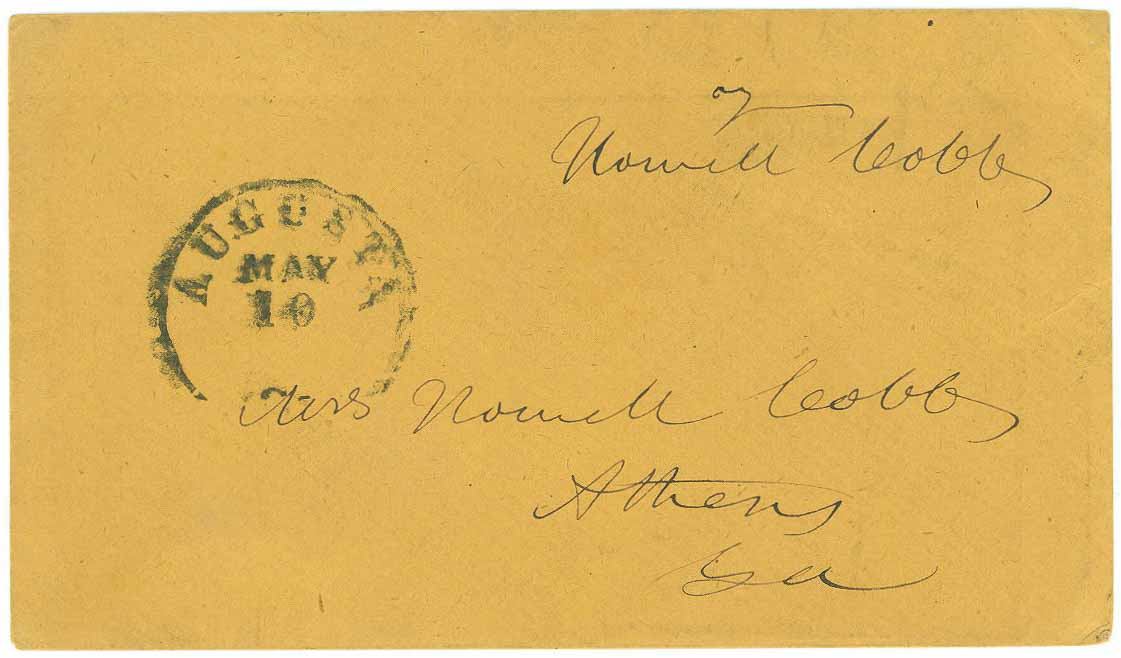 Howell Cobb
AUGUSTA
MAY
10
Mrs Howell Cobb
Athens
Ga